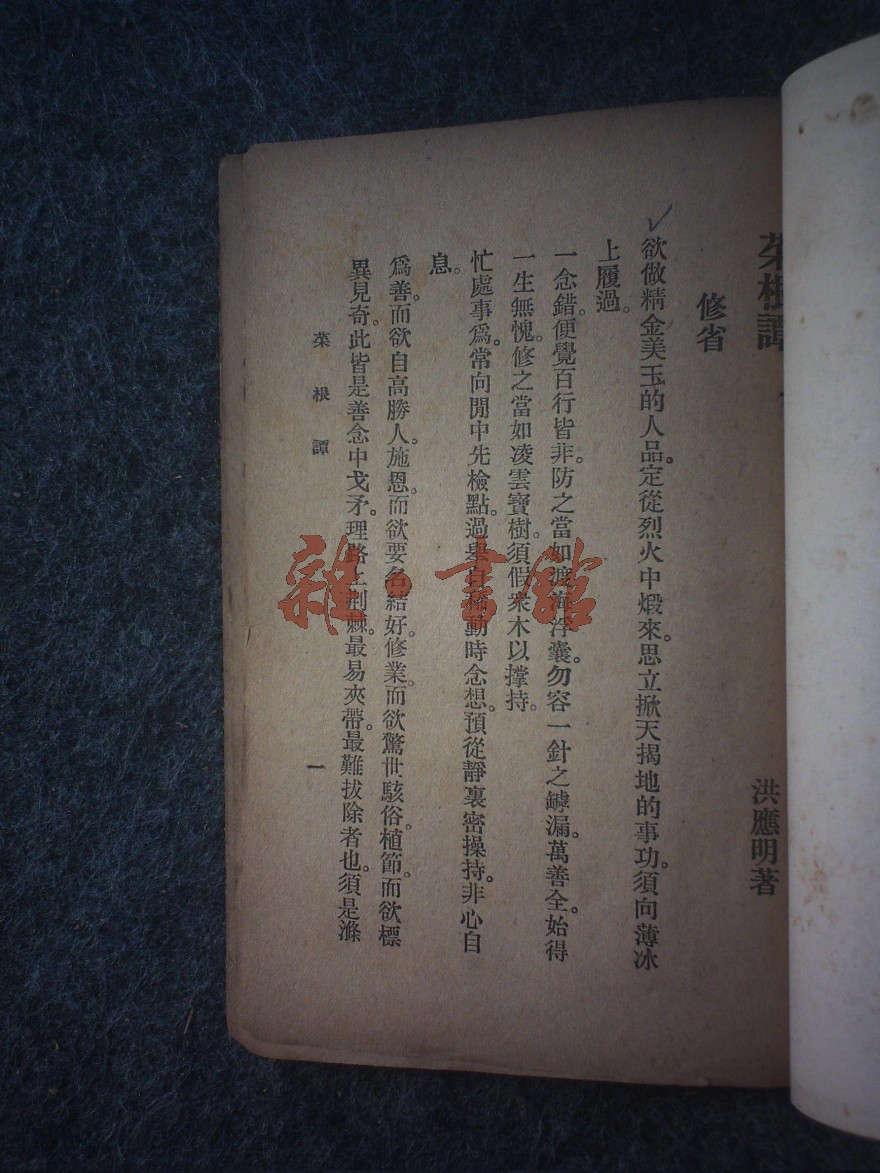 菜根譚
洪應明著
修省
欲做精金美玉的人品。定從烈火中煅來。思立掀天揭地的事功。須向薄冰
上履過。
一念錯。便覺百行皆非。防之當如渡海浮囊。勿容一針之罅漏。萬善全。始得
一生無愧。修之當如凌雲寶樹。須假衆木以撐持。
忙處事爲。常向閒中先檢點。過舉自稀。動時念想。預從靜裏密操持。非心自
息。
爲善。而欲自高勝人。施恩。而欲要名結好。修業。而欲驚世駭俗。植節。而欲標
異見奇。此皆是善念中戈矛。理路上荆棘。最易夾帶。最難拔除者也。須是滌
菜根譚
一
雜·書館